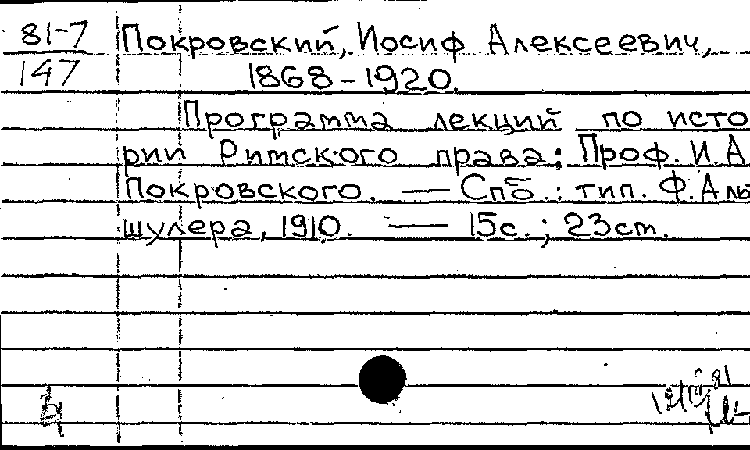 81-7
147
Покровский, Иосиф Алексеевич,
1868-1920.
Программа лекций по исто
рии Римского права; Проф. И.А
Покровского. — Спб.: тип. Ф.Аль
шулера, 1910. — 15с.; 23см.